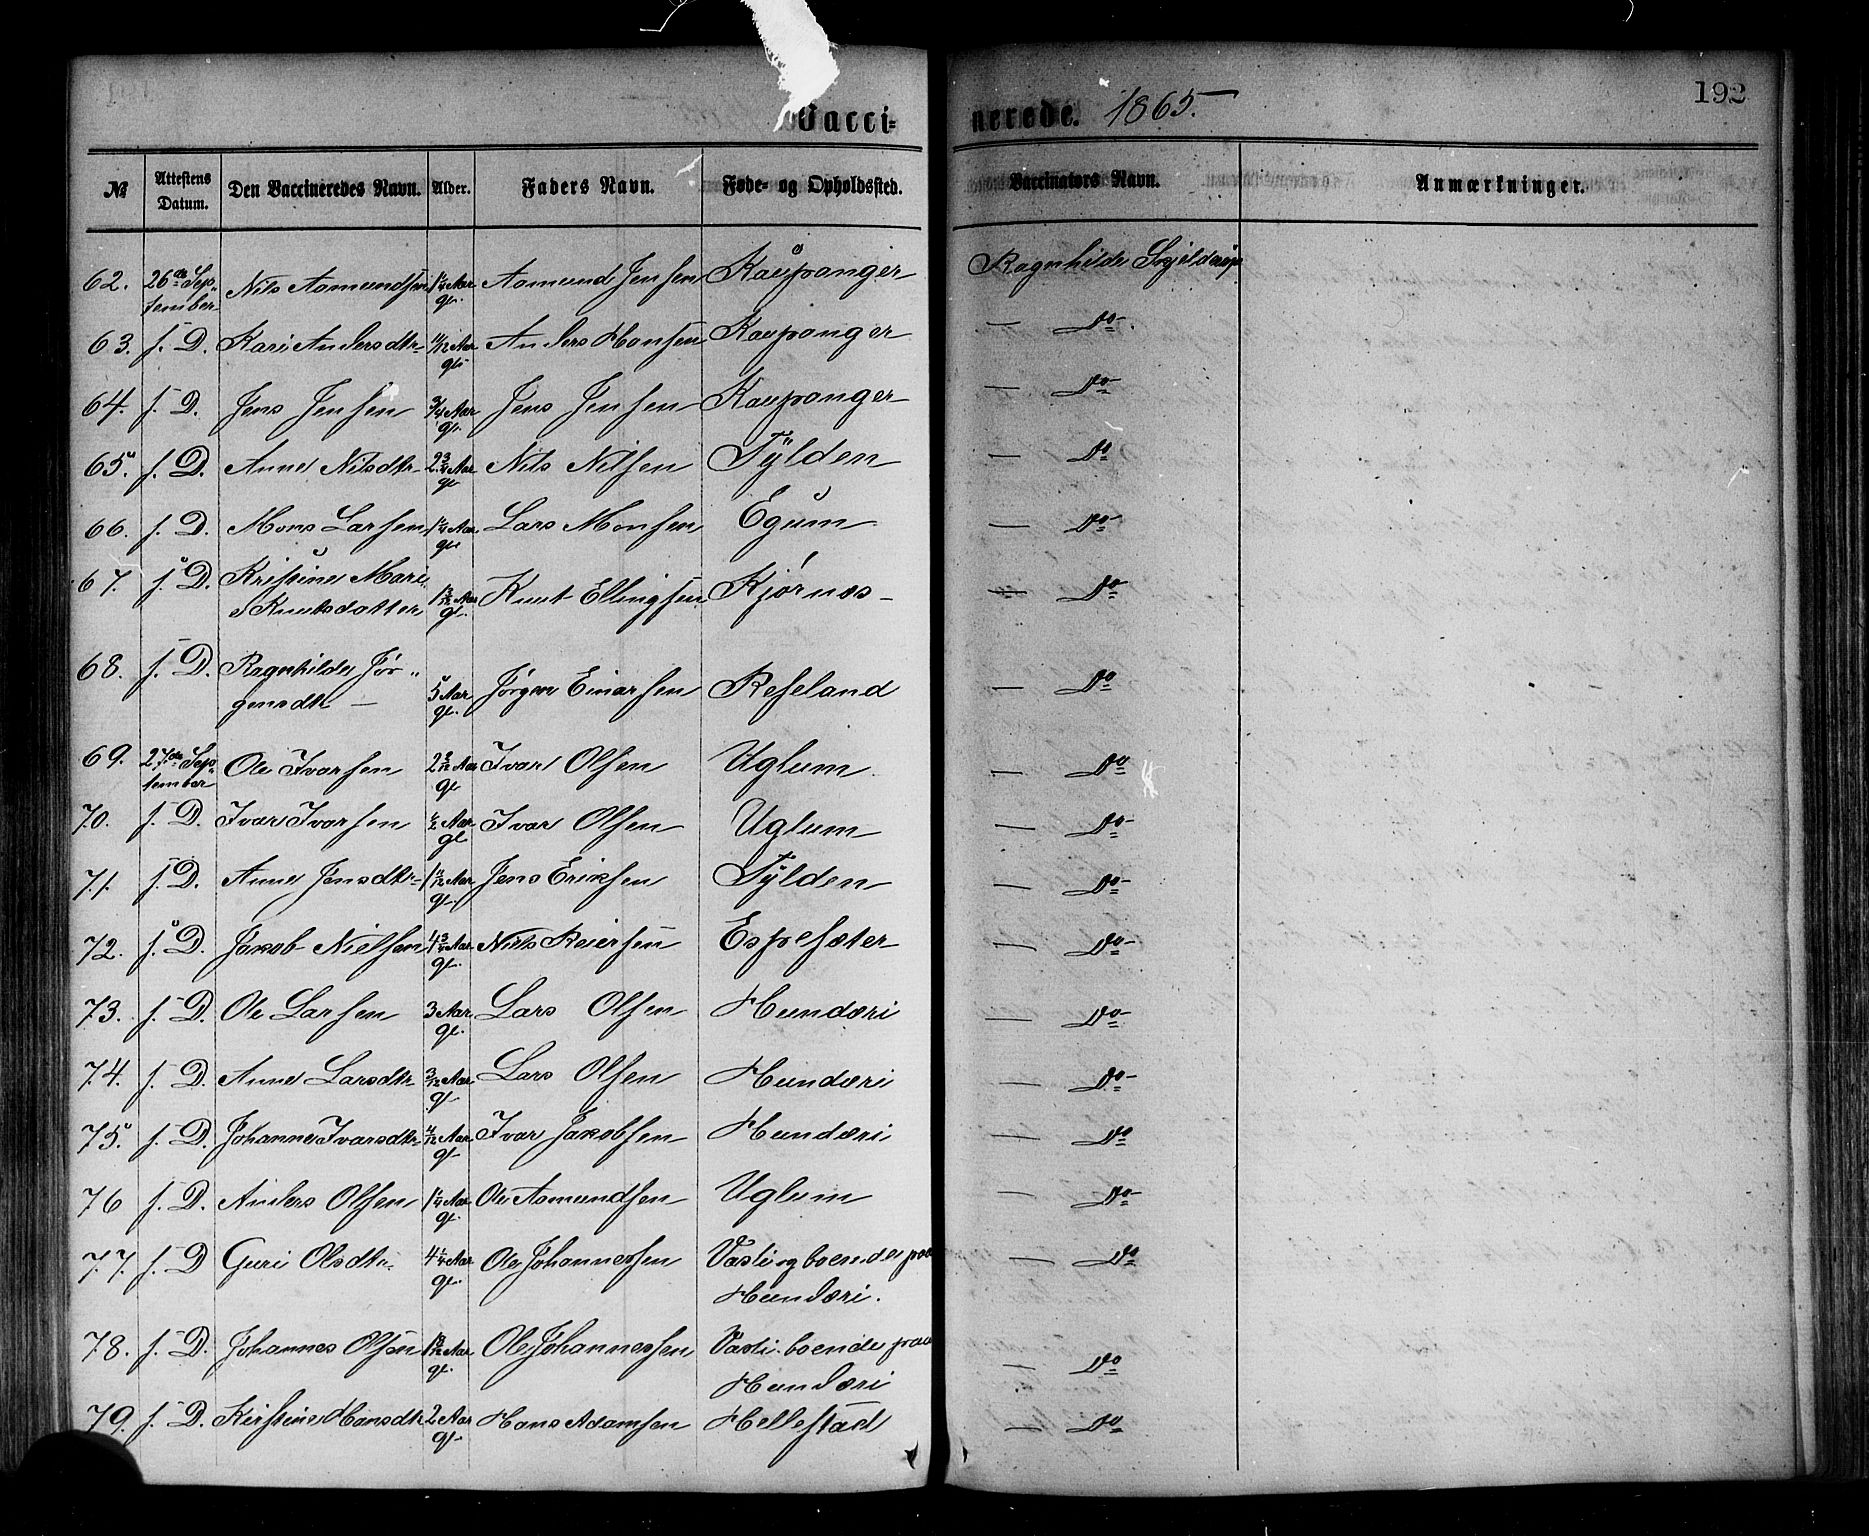 Vacci-
nerede. 1865.
192
№ Attestens Datum. Den Vaccineredes Navn. Alder. Faders Navn. Føde- og Opholdssted. Vaccinators Navn. Anmærkninger.
62. 26de Sep- Nils Aamundsen 1¼ Aar Aamund Jensen Kaupanger Ragnhilde
tember gl.
63. s. D. Kari Andersdtr 11/12 Aar Anders Hansen Kaupanger — Do
gl.
64. s. D. Jens Jensen ¾ Aar Jens Jensen Kaupanger — Do
gl.
65. s. D. Anne Nilsdtr 2¾ Aar Nils Nilsen Tylden — Do
gl.
66. s. D. Mons Larsen 1¼ Aar Lars Monsen Egum — Do
gl.
67. s. D. Kristine Marie
Knutsdatter Aar Knut Ellingsen Kjørnæs — Do
gl.
68. s. D. Ragnhilde Jør-
gensdtr — 5 Aar Jørgen Einarsen Reseland — Do
gl.
69. 27de Sep- Ole Ivarsen Aar Ivar Olsen Uglum — Do
tember gl.
70. s. D. Ivar Ivarsen ½ Aar Ivar Olsen Uglum — Do
gl
71. s. D. Anne Jensdtr Aar Jens Eriksen Tylden — Do
gl.
72. s. D. Jakob Nielsen Aar Niels Reiersen Espesæter — Do
gl.
73. s. D. Ole Larsen 3 Aar Lars Olsen Hundæri — Do
gl.
74. s. D. Anne Larsdtr 3/12 Aar Lars Olsen Hundæri — Do
gl.
75. s. D. Johanne Ivarsdtr 4/12 Aar Ivar Jakobsen Hundæri — Do
gl.
76 s. D. Anders Olsen 1¼ Aar Ole Aamundsen Uglum — Do
gl.
77. s. D Guri Olsdtr 4¼ Aar Ole Johannessen Vasli og boende paa — Do
gl. Hundæri.
78. s. D. Johannes Olsen Aar Ole Johannessen Vasli. boende paa
gl. Hundæri — Do
79. s. D. Kirstine Hansdtr 2 Aar Hans Adamsen Hellestad — Do
gl.